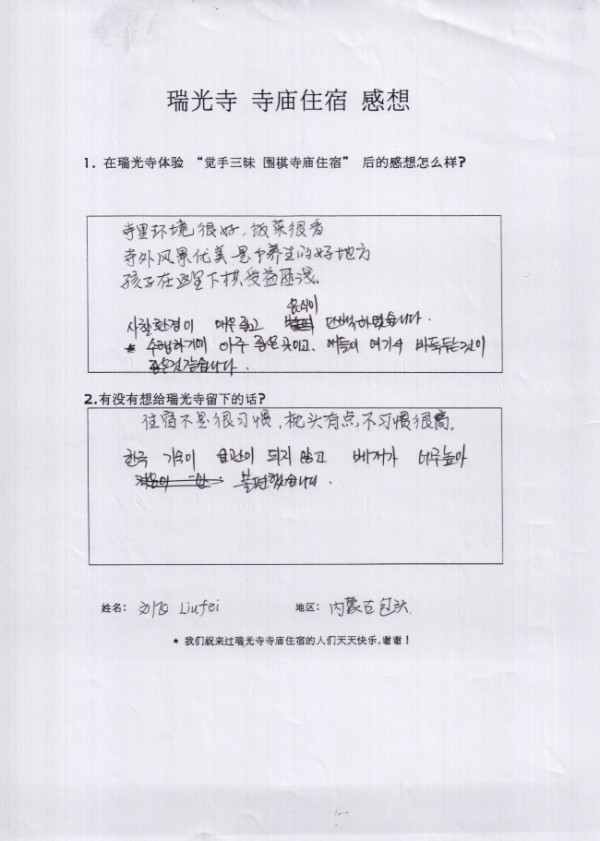 瑞光寺 寺庙住宿 感想
1. 在瑞光寺体验 “觉手三昧 围棋寺庙住宿” 后的感想怎么样?
寺里环境很好，饭菜很香
寺外风景优美是个养生的好地方
孩子在这里下棋受益匪浅。
음식이
사찰환경이 매우 좋고 단백하였습니다.
* 수행하기에 아주 좋은곳이고. 애들이 여기서 바둑두는것이
좋은것 같습니다.
2.有没有想给瑞光寺留下的话?
住宿不是很习惯，枕头有点不习惯很高。
한국 가옥이 습관이 되지 않고 베개가 너무높아
불편했습니다.
姓名: 刘飞 Liufei 地区: 内蒙古包头
* 我们祝来过瑞光寺寺庙住宿的人们天天快乐.谢谢!